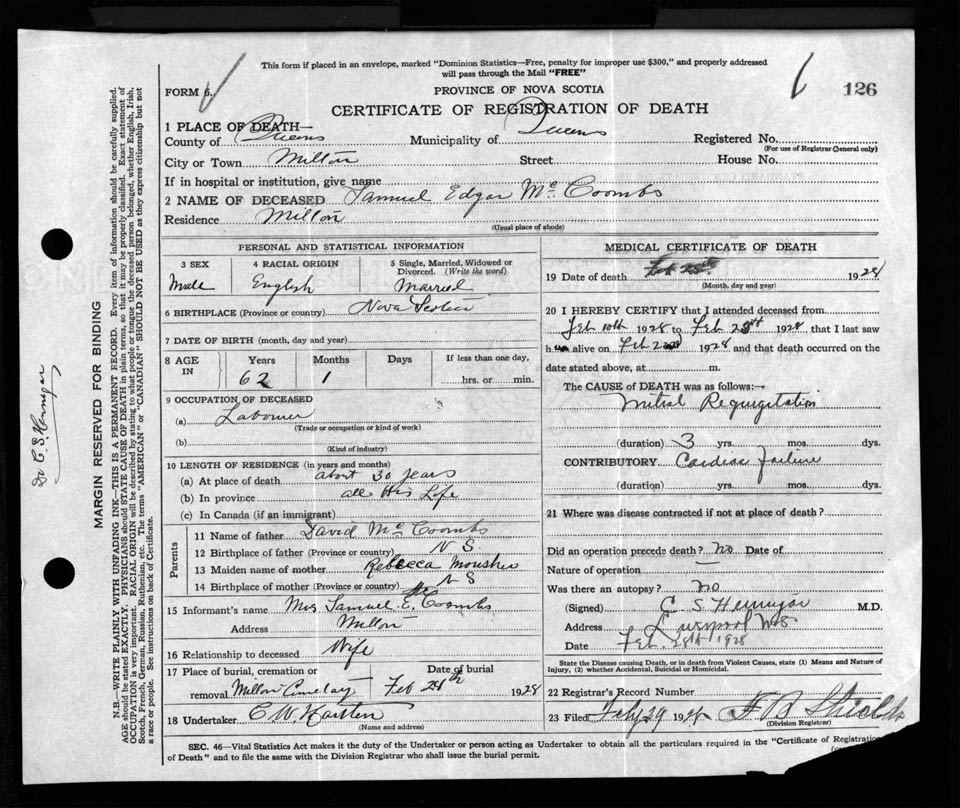 This form if placed in an envelope, marked "Dominion Statistics—Free, penalty for improper use $300," and properly addressed
will pass through the Mail "FREE"
FORM 6.
PROVINCE OF NOVA SCOTIA
126
CERTIFICATE OF REGISTRATION OF DEATH
1 PLACE OF DEATH—
County of Queens Municipality of Queens Registered No.
(For use of Registrar General only)
City or Town Milton Street House No.
If in hospital or institution, give name
2 NAME OF DECEASED Samuel Edgar Mc Coombs
Residence Milton
(Usual place of abode)
PERSONAL AND STATISTICAL INFORMATION
3 SEX
Male
4 RACIAL ORIGIN
English
5 Single, Married, Widowed or
Divorced. (Write the word)
Married
6 BIRTHPLACE (Province or country) Nova Scotia
7 DATE OF BIRTH (month, day and year)
8 AGE
IN
Years
62
Months
1
Days
If less than one day,
hrs. or min.
9 OCCUPATION OF DECEASED
(a) Labourer
(Trade or occupation or kind of work)
(b)
(Kind of industry)
10 LENGTH OF RESIDENCE (in years and months)
(a) At place of death about 30 years
(b) In province all His Life
(c) In Canada (if an immigrant)
Parents
11 Name of father David Mc Coombs
12 Birthplace of father (Province or country) N S.
13 Maiden name of mother Rebecca
14 Birthplace of mother (Province or country) N S
15 Informant's name Mrs Samuel E. Coombs
Address Milton
16 Relationship to deceased Wife
17 Place of burial, cremation or
removal Milton
Date of burial
Feb 1928
18 Undertaker C W
(Name and address)
MEDICAL CERTIFICATE OF DEATH
19 Date of death Feb 1928
(Month, day and year)
20 I HEREBY CERTIFY that I attended deceased from
Feb 10th 1928 to Feb 1928 that I last saw
h alive on Feb 1928 and that death occurred on the
date stated above, at m.
The CAUSE OF DEATH was as follows:—
Mitral Regurgitation
(duration) 3 yrs. mos. dys.
CONTRIBUTORY Cardiac Failure
(duration) yrs. mos. dys.
21 Where was disease contracted if not at place of death?
Did an operation precede death? no Date of
Nature of operation
Was there an autopsy? no
(Signed) C S Hennigar M.D.
Address Liverpool N S
Date Feb. 28th 1928
State the Disease causing Death, or in death from Violent Causes, state (1) Means and Nature of
Injury, (2) whether Accidental, Suicidal or Homicidal.
22 Registrar's Record Number
23 Filed Feby 29 1928 F B Shields
(Division Registrar)
SEC. 46—Vital Statistics Act makes it the duty of the Undertaker or person acting as Undertaker to obtain all the particulars required in the "Certificate of Registration
of Death" and to file the same with the Division Registrar who shall issue the burial permit.
MARGIN RESERVED FOR BINDING
N.B.—WRITE PLAINLY WITH UNFADING INK—THIS IS A PERMANENT RECORD. Every item of information should be carefully supplied.
AGE should be stated EXACTLY. PHYSICIANS should STATE CAUSE OF DEATH in plain terms, so that it may be properly classified. Exact statement of
OCCUPATION is very important. RACIAL ORIGIN will be described by stating to what people or tongue the deceased person belonged, whether English, Irish,
Scotch, French, German, Russian, Ruthenian, etc. The terms "AMERICAN" or "CANADIAN" SHOULD NOT BE USED as they express citizenship but not
a race or people. See instructions on back of Certificate.
Dr C. S. Hennigar